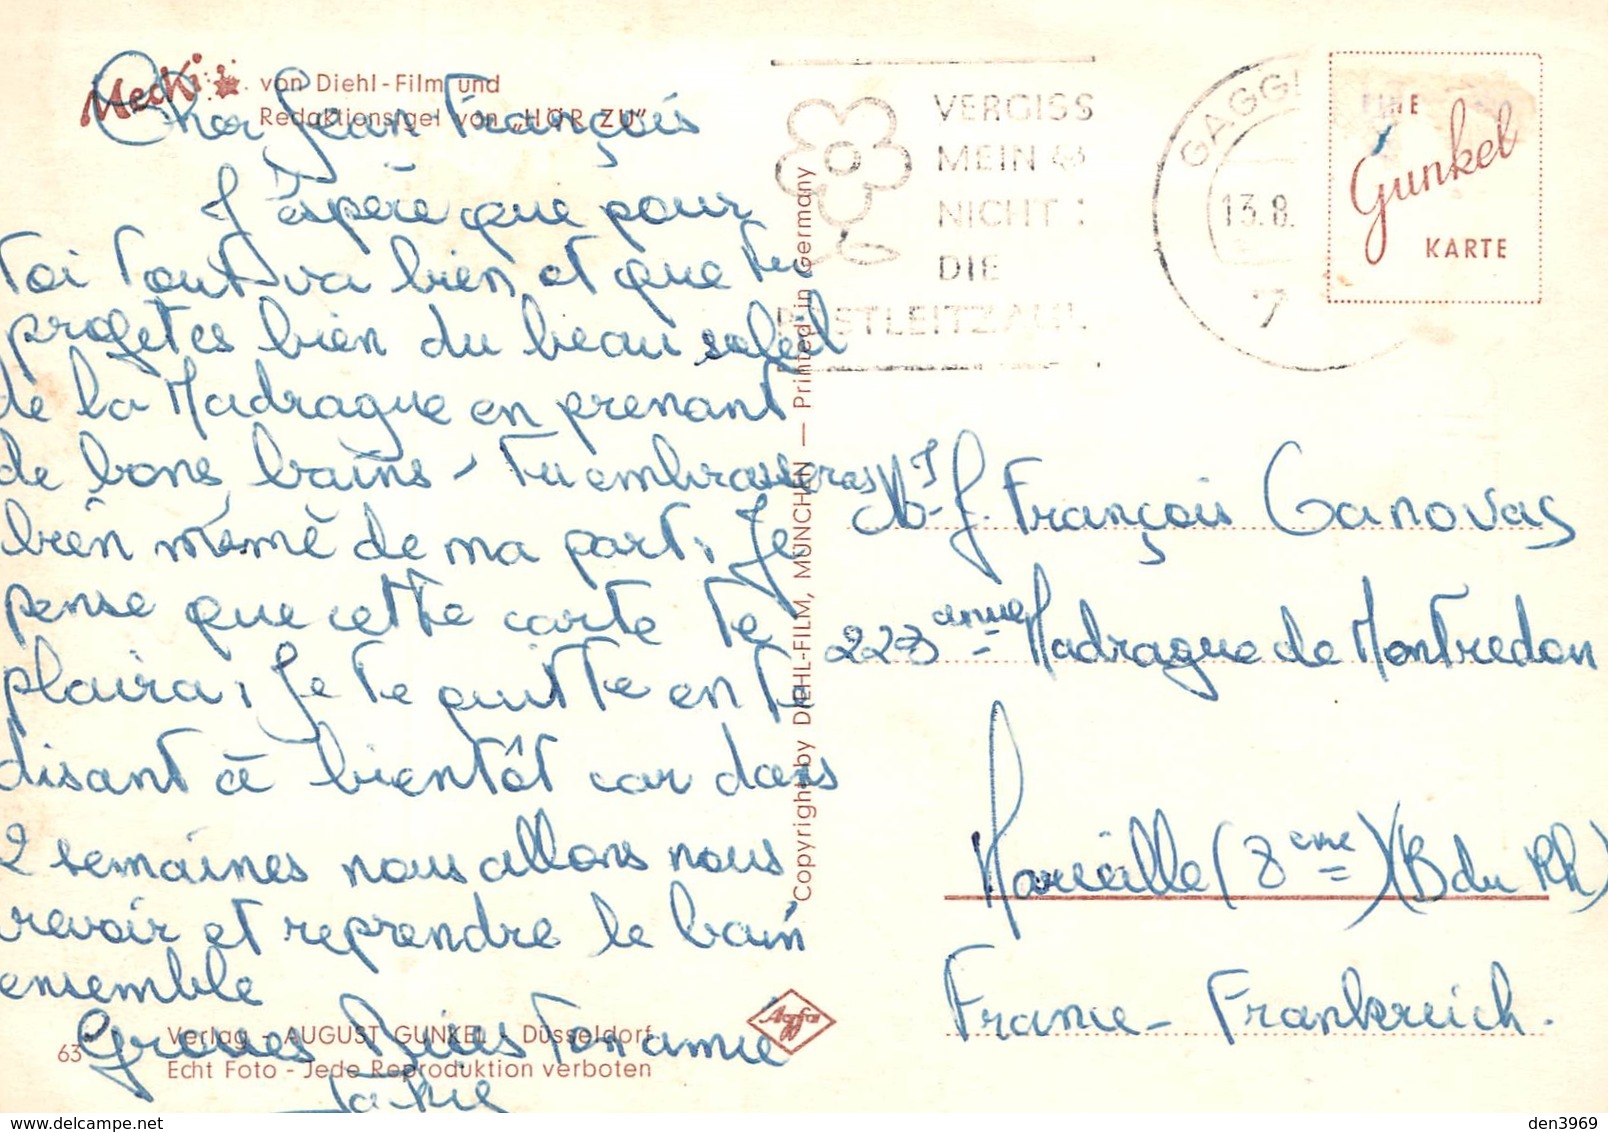 Mecki von Diehl-Film und
Redaktionsigel von „HÖR ZU"
Cher Jean François
J'éspère que pour
toi tout va bien et que tu
profetes bien du beau soleil
de la Madrague en prenant
de bons bains - tu embrasseras
bien mémé de ma part. Je
pense que cette carte te
plaira, Je te quitte en te
disant à bientôt car dans
2 semaines nous allons nous
revoir et reprendre le bain
ensemble
Grosses Bises ton amie
63 Verlag - AUGUST GUNKEL - Düsseldorf
Echt Foto - Jede Reproduktion verboten
Agfa
Copyright by DIEHL-FILM, MÜNCHEN — Printed in Germany
VERGISS
MEIN
NICHT:
DIE
POSTLEITZAHL
GAGG
13.8.
EINE
Gunkel
KARTE
J. François Canovas
223 Madrague de Montredon
Marseille (8eme) (B du Rh)
France - Frankreich.
delcampe.net
den3969